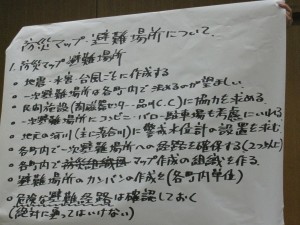 防災マップ 避難場所について.
1. 防災マップ 避難場所
• 地震・水害・台風ごとに作成する
• 一次避難場所は各町内で決めるのが望ましい.
• 民間施設(陶磁器センター・品川C.C)に協力を求める.
• 一次避難場所にコンビニ・パロー駐車場も考慮にいれる
• 地元の河川(主に 川)に警戒水位計の設置を求む
• 各町内で一次避難場所への経路を確保する(2つ以上)
• 各町内で マップ作成の組織を作る.
• 避難場所のカンバンの作成を(各町内単位)
○ 危険な避難経路は確認しておく
(絶対に通ってはいけない)